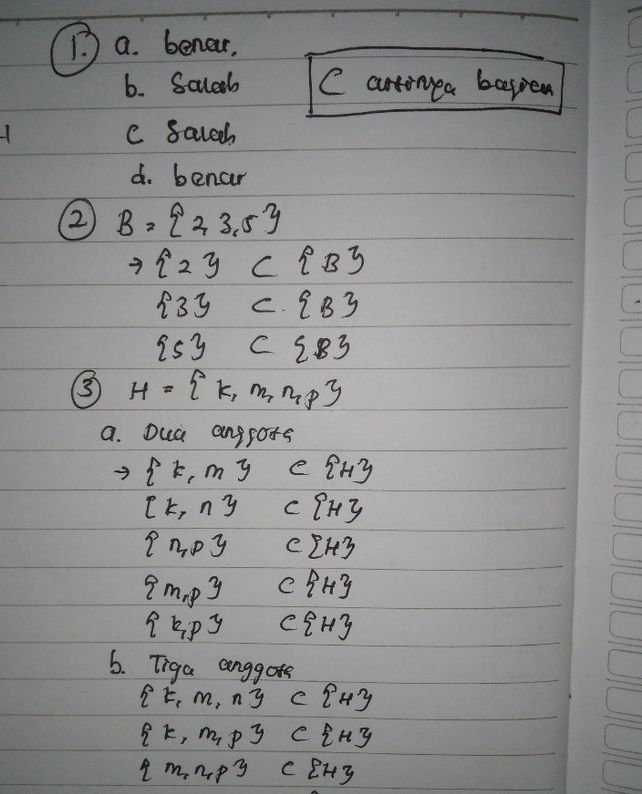 1. a. benar.
b. Salah
⊂ artinya bagian
c Salah
d. benar
2 B = {2, 3, 5}
→ {2} ⊂ {B}
{3} ⊂ {B}
{5} ⊂ {B}
3 H = {k, m, n, p}
a. Dua anggota
→ {k, m} ⊂ {H}
{k, n} ⊂ {H}
{n, p} ⊂ {H}
{m, p} ⊂ {H}
{k, p} ⊂ {H}
b. Tiga anggota
{k, m, n} ⊂ {H}
{k, m, p} ⊂ {H}
{m, n, p} ⊂ {H}